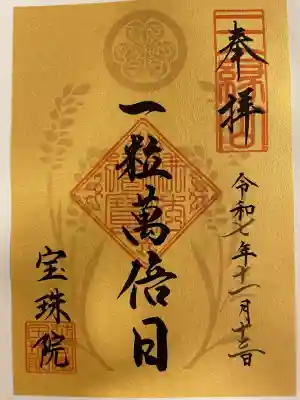 奉拝
令和七年十一月十三日
一粒萬倍日
宝珠院